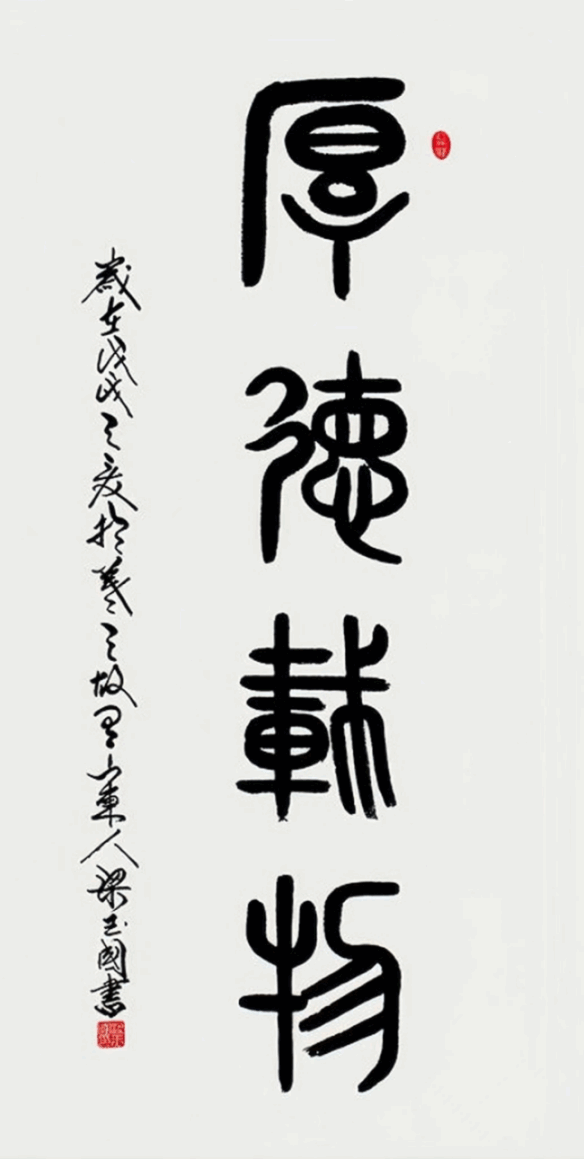 厚德载物
歲在戊戌之夏於羲之故里山東人梁玉國書